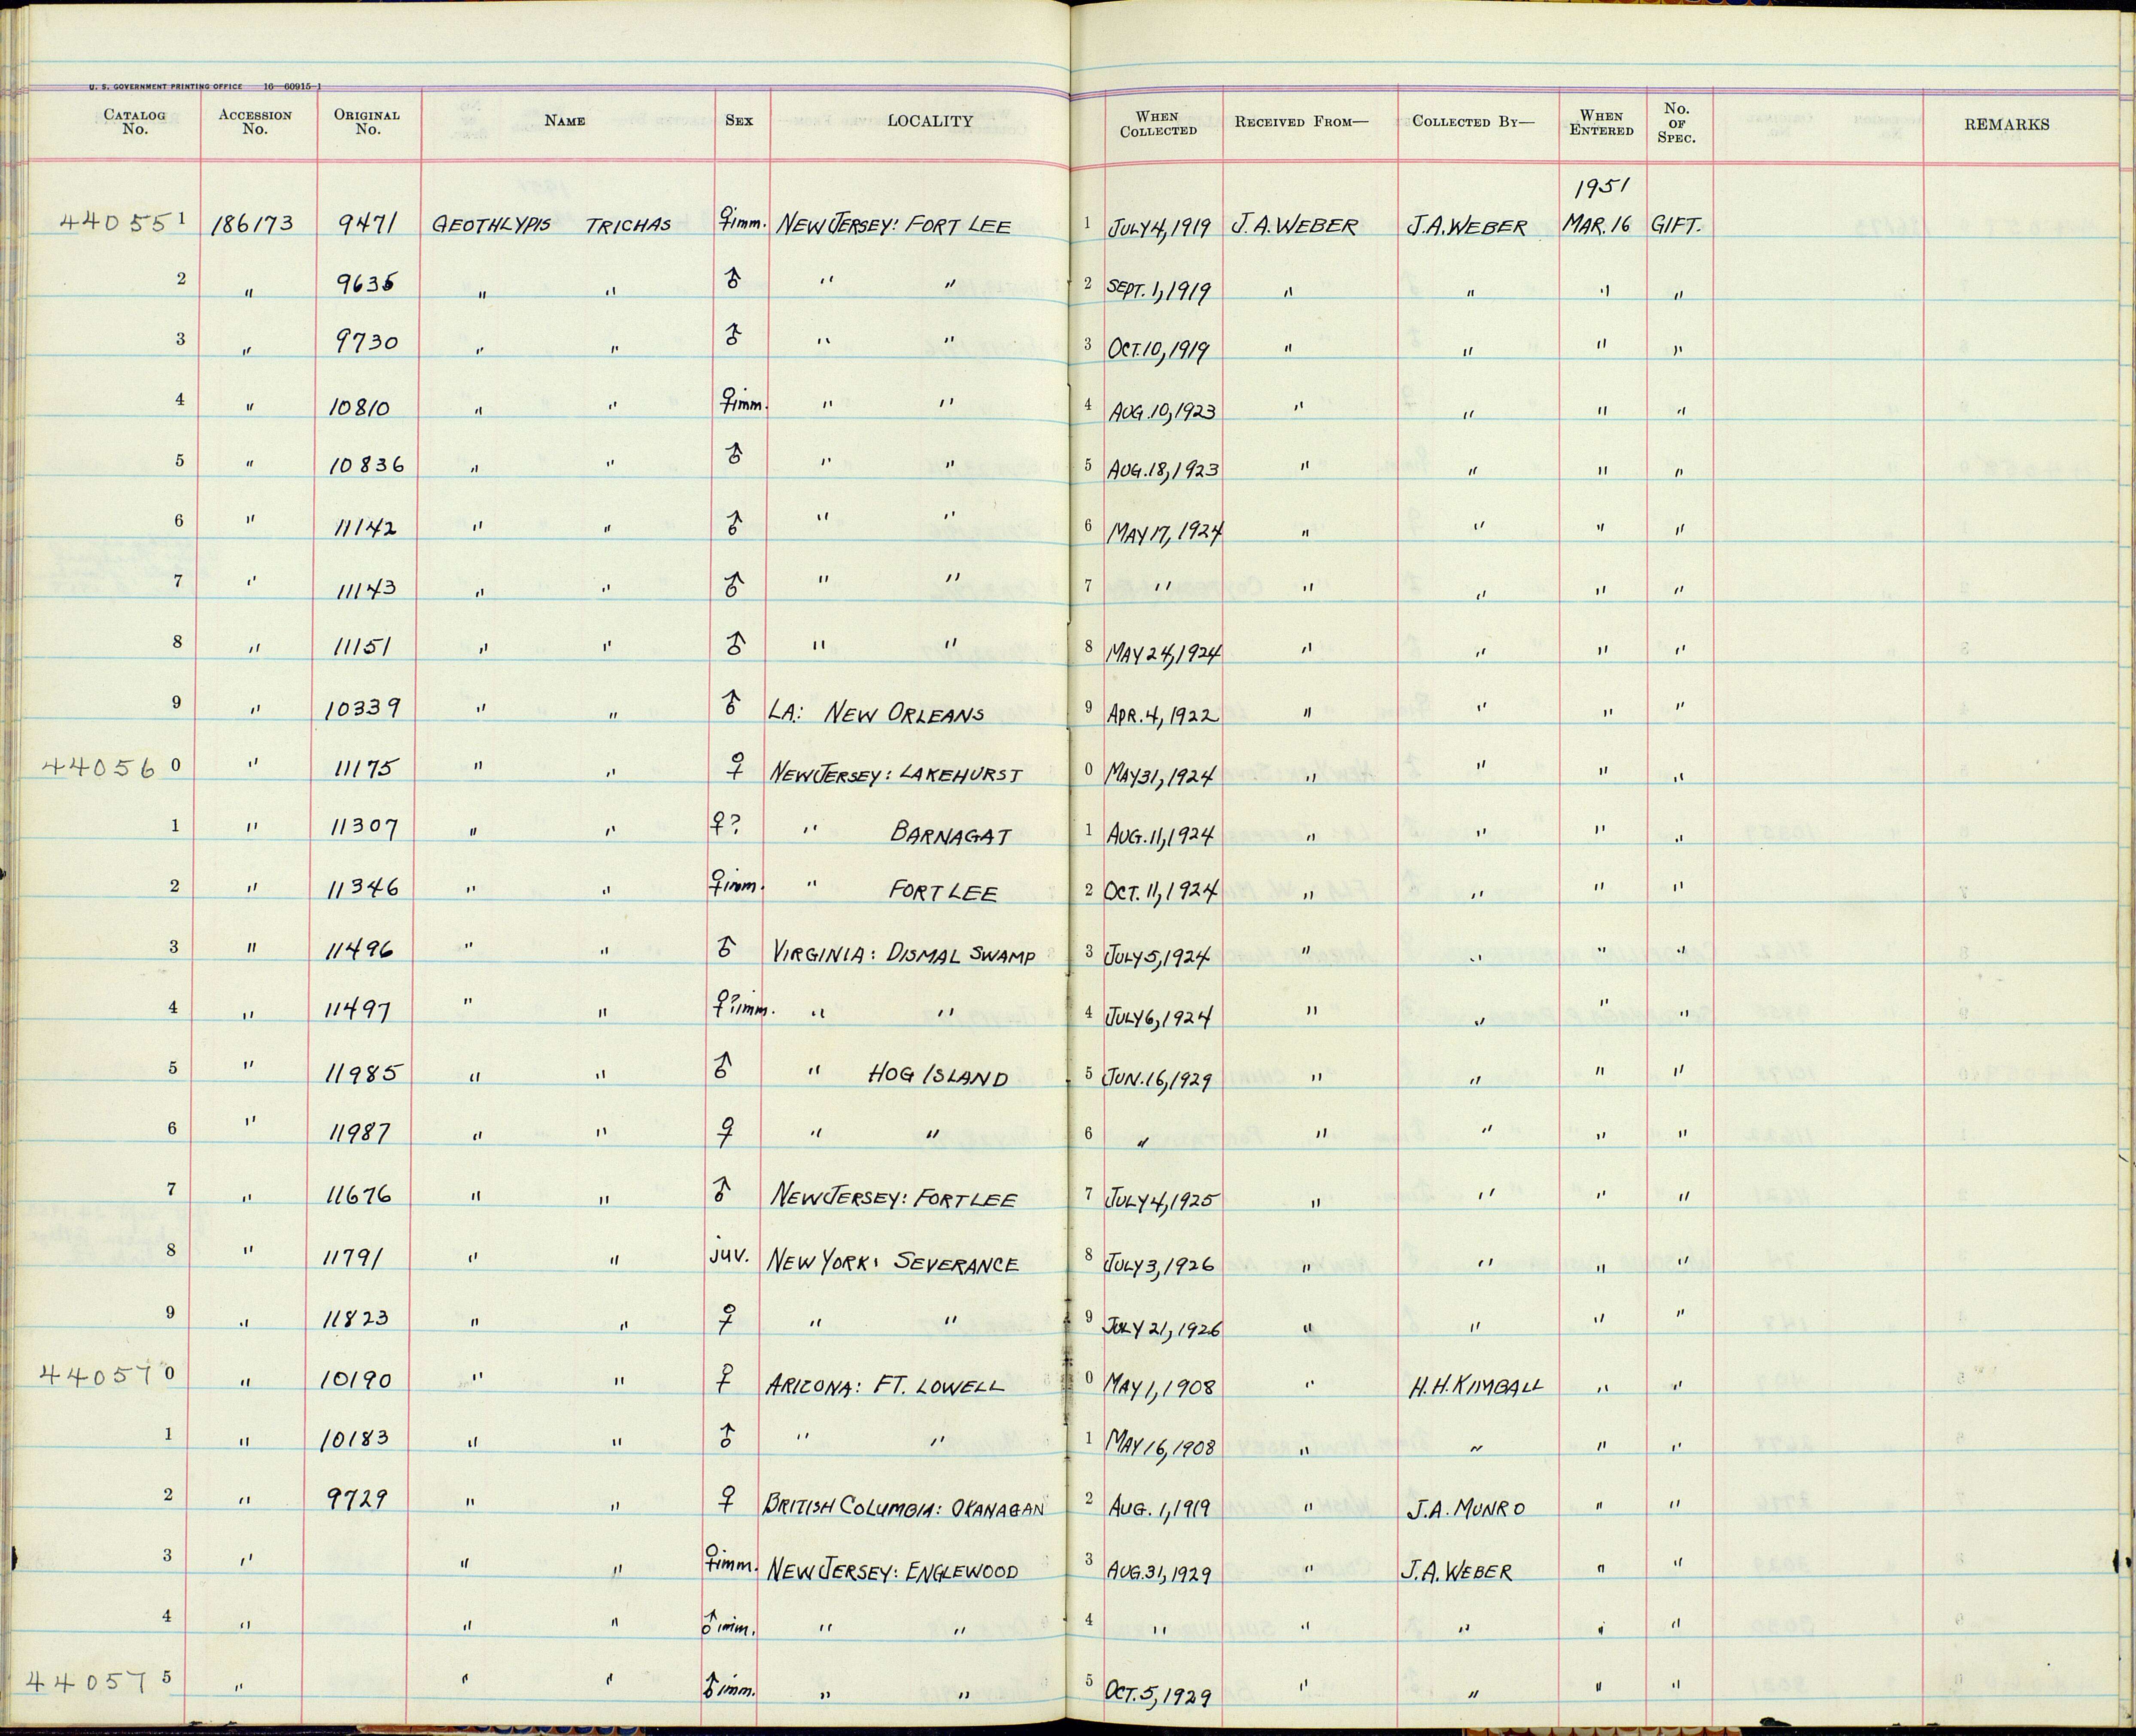 U. S. GOVERNMENT PRINTING OFFICE 16—60915-1
CATALOG No. ACCESSION No. ORIGINAL No. NAME SEX LOCALITY WHEN COLLECTED RECEIVED FROM— COLLECTED BY— WHEN ENTERED No. OF SPEC. REMARKS
1951
44055 1 186173 9471 GEOTHLYPIS TRICHAS ♀imm. NEW JERSEY: FORT LEE 1 JULY 4, 1919 J.A. WEBER J.A. WEBER MAR. 16 GIFT.
2 " 9635 " " ♂ " " 2 SEPT. 1, 1919 " " " "
3 " 9730 " " ♂ " " 3 OCT. 10, 1919 " " " "
4 " 10810 " " ♀imm. " " 4 AUG. 10, 1923 " " " "
5 " 10836 " " ♂ " " 5 AUG. 18, 1923 " " " "
6 " 11142 " " ♂ " " 6 MAY 17, 1924 " " " "
7 " 11143 " " ♂ " " 7 " " " " "
8 " 11151 " " ♂ " " 8 MAY 24, 1924 " " " "
9 " 10339 " " ♂ LA: NEW ORLEANS 9 APR. 4, 1922 " " " "
44056 0 " 11175 " " ♀ NEW JERSEY: LAKEHURST 0 MAY 31, 1924 " " " "
1 " 11307 " " ♀? " BARNAGAT 1 AUG. 11, 1924 " " " "
2 " 11346 " " ♀imm. " FORT LEE 2 OCT. 11, 1924 " " " "
3 " 11496 " " ♂ VIRGINIA: DISMAL SWAMP 3 JULY 5, 1924 " " " "
4 " 11497 " " ♀?imm. " " 4 JULY 6, 1924 " " " "
5 " 11985 " " ♂ " HOG ISLAND 5 JUN. 16, 1929 " " " "
6 " 11987 " " ♀ " " 6 " " " " "
7 " 11676 " " ♂ NEW JERSEY: FORT LEE 7 JULY 4, 1925 " " " "
8 " 11791 " " juv. NEW YORK: SEVERANCE 8 JULY 3, 1926 " " " "
9 " 11823 " " ♀ " " 9 JULY 21, 1926 " " " "
44057 0 " 10190 " " ♀ ARIZONA: FT. LOWELL 0 MAY 1, 1908 " H.H. KIMBALL " "
1 " 10183 " " ♂ " " 1 MAY 16, 1908 " " " "
2 " 9729 " " ♀ BRITISH COLUMBIA: OKANAGAN 2 AUG. 1, 1919 " J.A. MUNRO " "
3 " " " ♀imm. NEW JERSEY: ENGLEWOOD 3 AUG. 31, 1929 " J.A. WEBER " "
4 " " " ♂imm. " " 4 " " " " "
44057 5 " " " ♂imm. " " 5 OCT. 5, 1929 " " " "